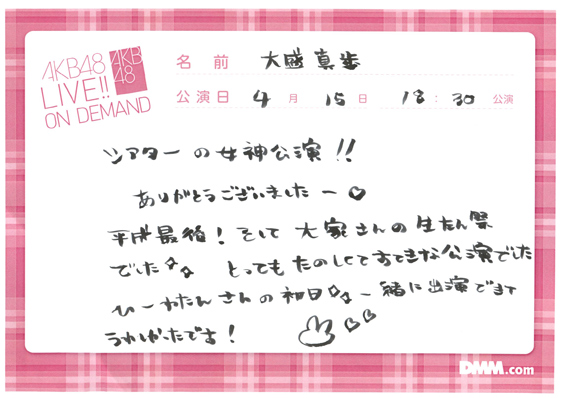 AKB48
LIVE!!
ON DEMAND
AKB
48
名前 大盛真歩
公演日 4月 15日 18:30 公演
シアターの女神公演!!
ありがとうございましたー♡
平成最後!そして大家さんの生たん祭
でした とってもたのしくてすてきな公演でした
ひーわたんさんの初日 一緒に出演できて
うれしかったです!
DMM.com